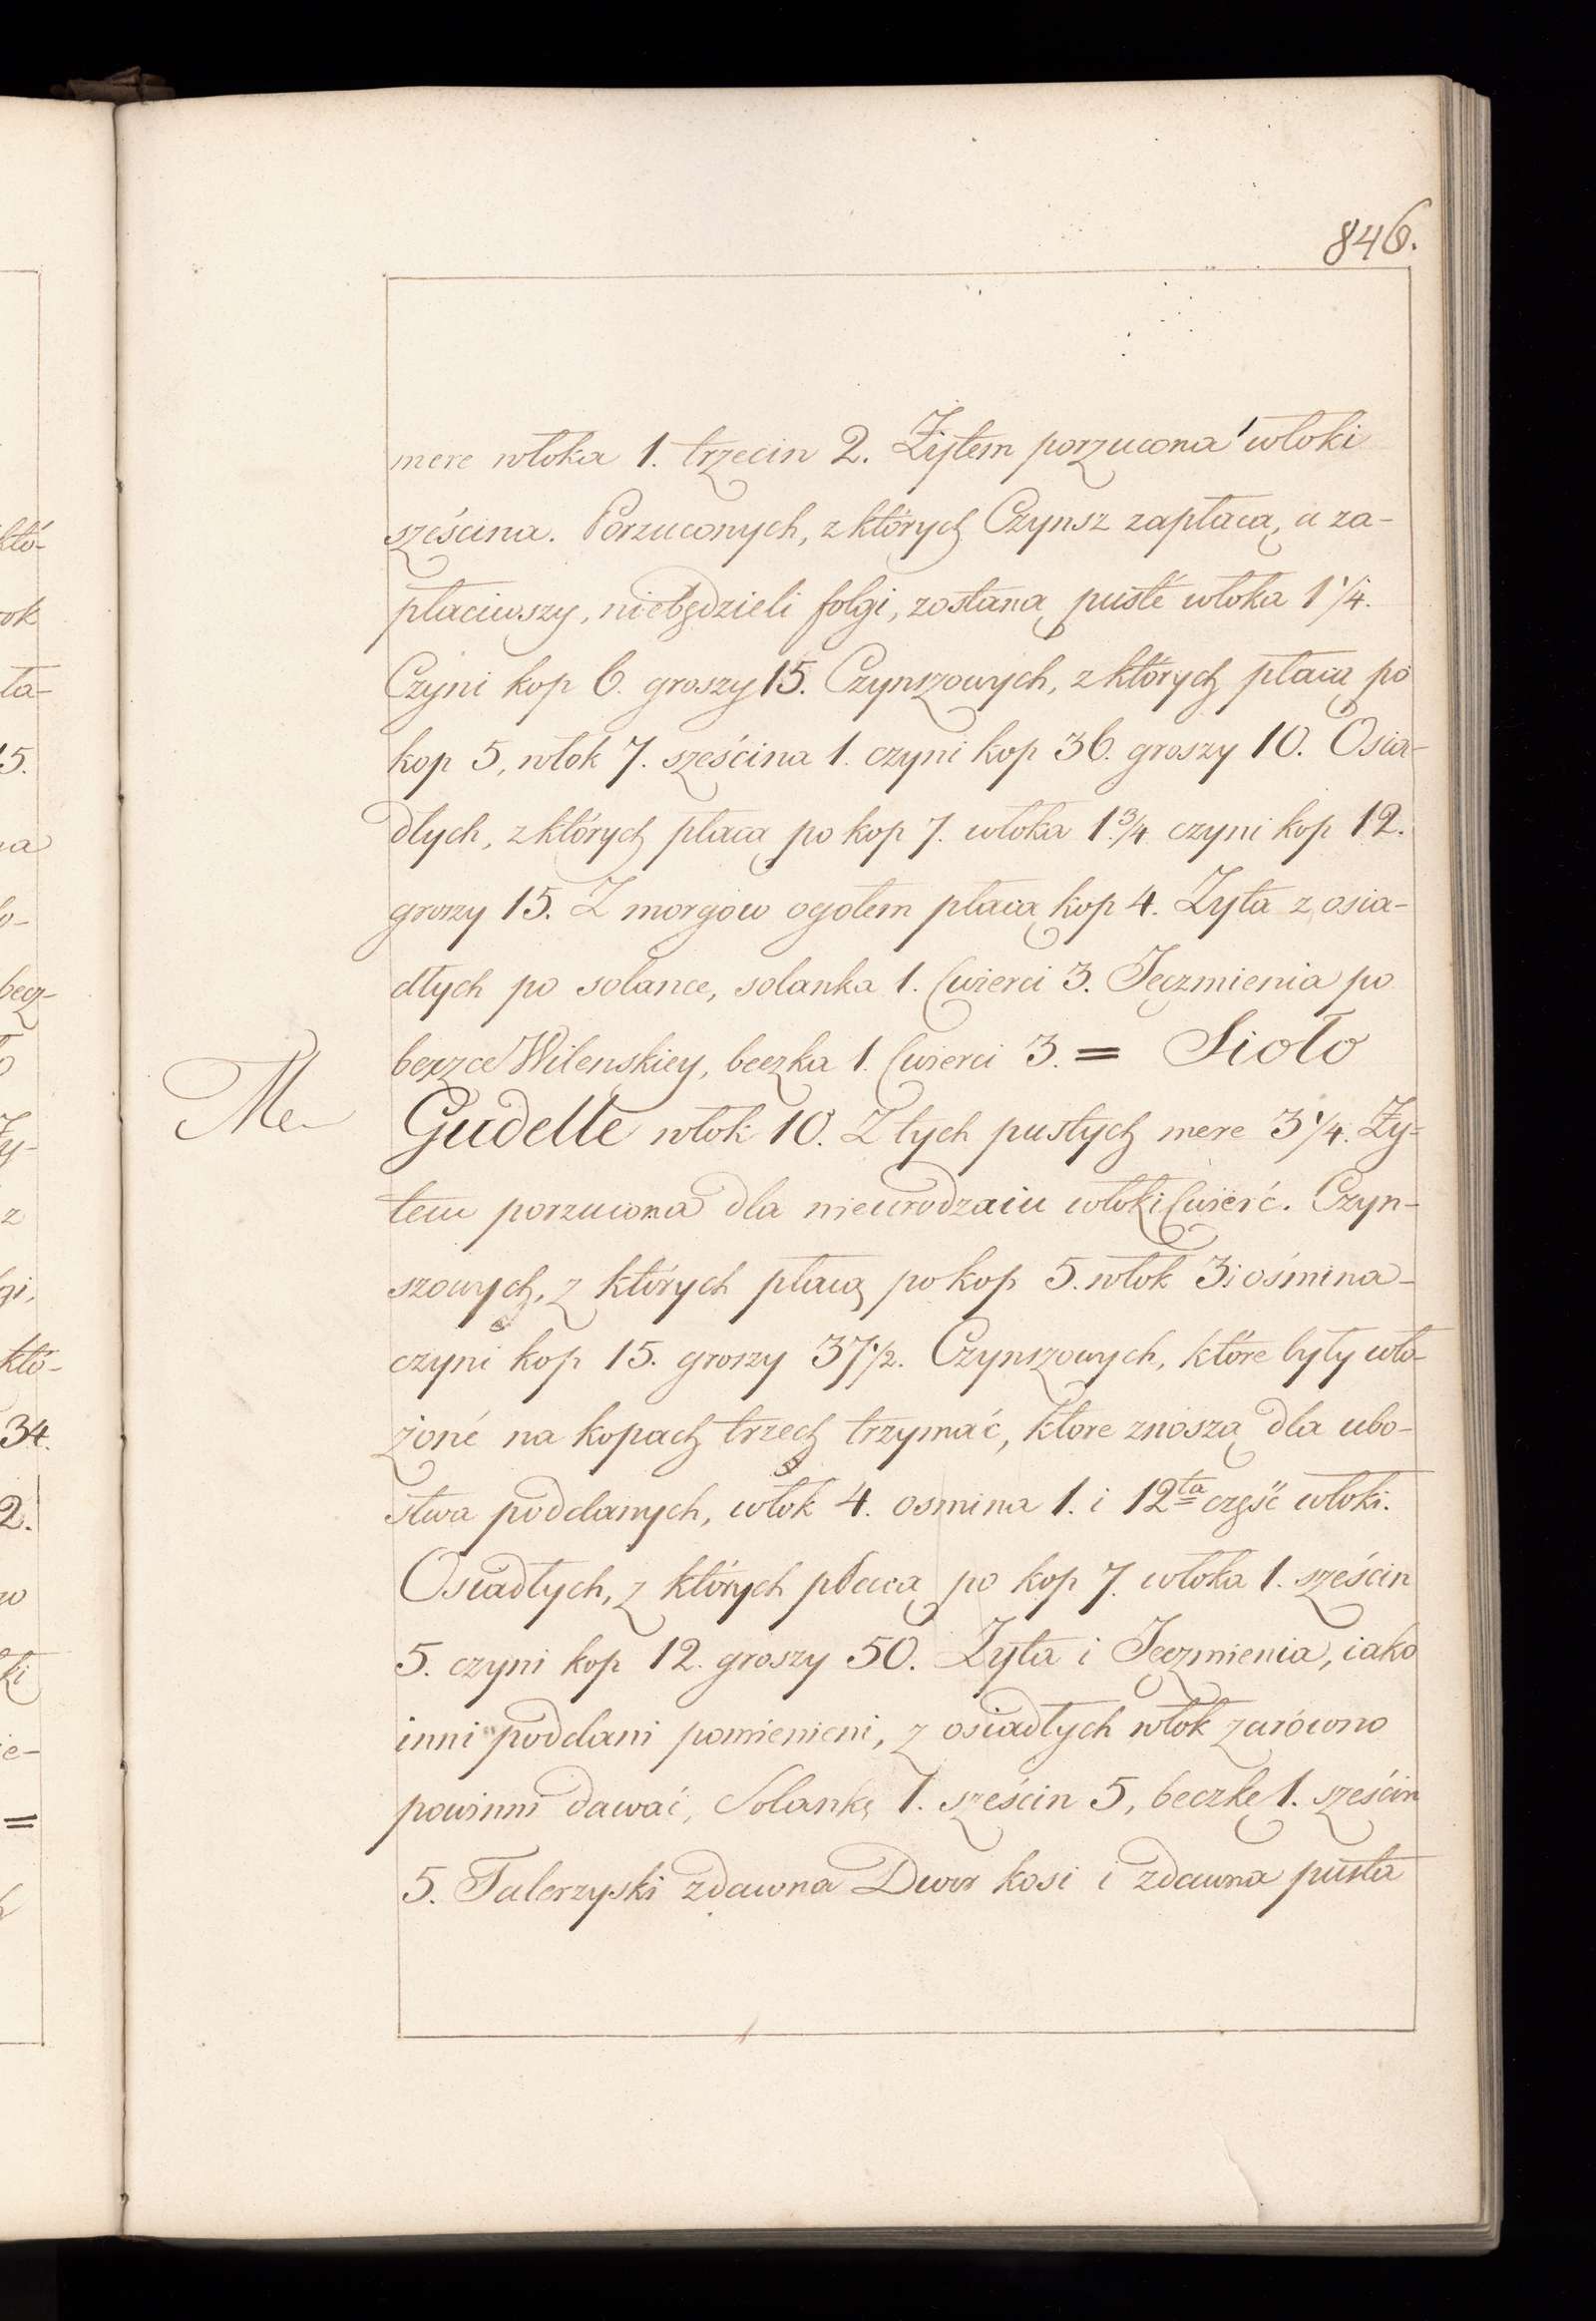 846.
mere włoka 1. trzecin 2. Żytem porzucona włoki
sześcina. Porzuconych, z których Czynsz zapłacą, a za-
płaciwszy, niebędzieli folgi, zostaną pusté włoka 1 1/4.
Czyni kop 6. groszy 15. Czynszowych, z których płacą po
kop 5, włok 7. sześcina 1. czyni kop 36. groszy 10. Osia-
dłych, z których płacą po kop 7. włoka 1.3/4 czyni kop 12.
groszy 15. Z morgow ogołem płacą kop 4. Żyta z osia-
dłych po solance, solanka 1. Cwierci 3. Jęczmienia po
beczce Wilenskiey, beczka 1. Cwierci 3. = Sioło
Gudelle włok 10. Z tych pustych mere 3 1/4. Ży-
tem porzucona dla nieurodzaiu włoki Cwierć. Czyn-
szowych, z których płacą po kop 5. włok 3 i ośmina
czyni kop 15. groszy 37 1/2. Czynszowych, które były wło-
żoné na kopach trzech trzymać, ktore znoszą dla ubo-
stwa poddanych, włok 4. osmina 1. i 12ta część włoki.
Osiadłych, z których płacą po kop 7. włoka 1. sześcin
5. czyni kop 12. groszy 50. Żyta i Jęczmienia, iako
inni poddani pomienieni, z osiadłych włok zarówno
powinni dawać, Solankę 1. sześcin 5, beczkę 1. sześcin
5. Talerzyski zdawna Dwor kosi i zdawna pusta